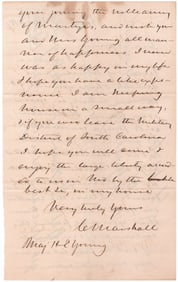 you joing the noble army
of Martyrs, and wish you
and Mrs Young all man
ner of happiness. I never
was as happy in my life.
I hope you have a like expe-
rience. I am keeping
house in a small way.
if you ever leave the Military
District of South Carolina
I hope you will come &
enjoy the large liberty
by the
best in my house
Very truly Yours
C Marshall
May H E Young